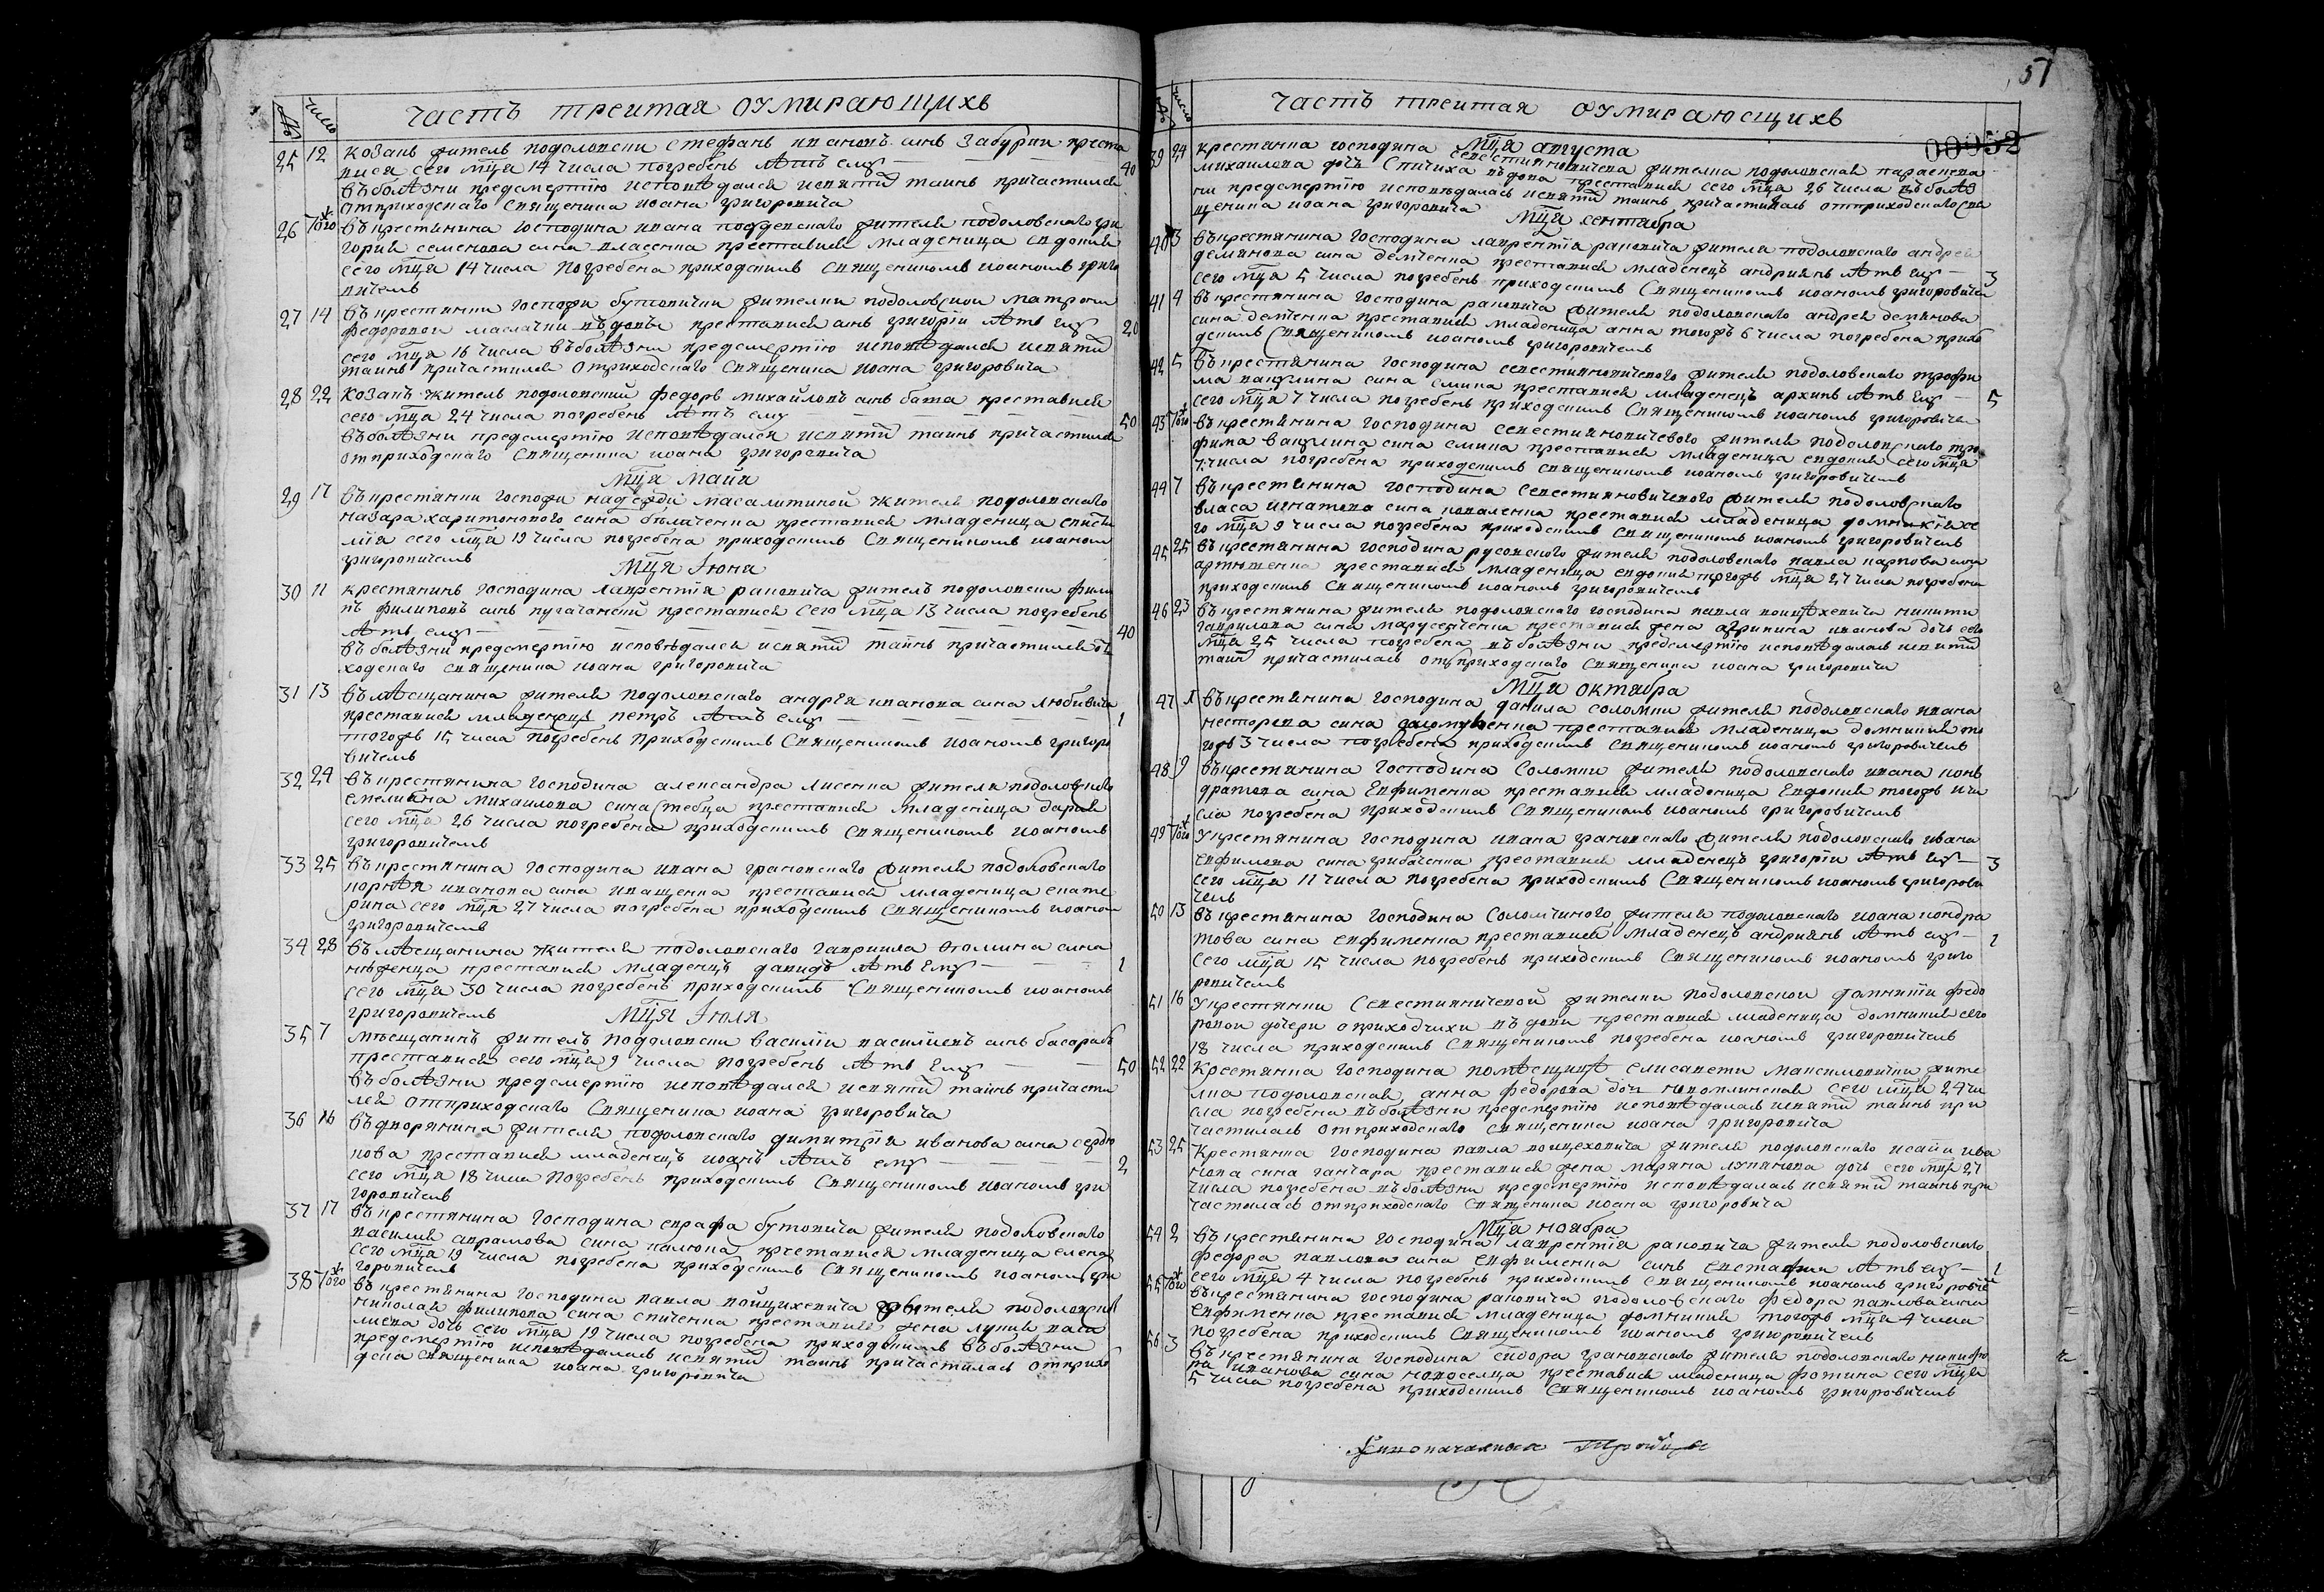 часть треитая оумирающихъ
№ число
25 12 козакъ житель подоловски стефанъ ивановъ синъ забурин преста
вися сего мця 14 числа погребенъ лѣтъ ему — 40
въ болѣзни предсмертію исповѣдался исвятих таинъ причастился
отприходскаго священика иоана григоровича
26 тогож въ крестянина господина ивана жителя подоловскаго гри
гория семенова сина власенка преставися младеница евдокия
сего мця 14 числа погребена приходскимъ священикомъ иоаномъ григо
ровичемъ
27 14 въ крестянки госпожи бутовички жителки подоловской матрони
федоровой масачки вѣдови преставися синъ григорій лѣтъ ему 20
сего мця 16 числа въ болѣзни предсмертію исповѣдался исвятих
таинъ причастился отприходскаго священика иоана григоровича
28 22 козакъ житель подоловский федоръ михайловъ синъ бата преставися
сего мця 24 числа погребенъ лѣтъ ему — 50
въ болѣзни предсмертію исповѣдался исвятих таинъ причастился
отприходскаго священика иоана григоровича
мця маия
29 17 въ крестянки госпожи надежди масалитиной жителя подоловскаго
назара харитонового сина билаченка преставися младеница
мия сего мця 19 числа погребена приходскимъ священикомъ иоаном
григоровичемъ
мця июня
30 11 крестянинъ господина лаврентія раковича житель подоловски фили
пъ филиповъ синъ преставися сего мця 13 числа погребенъ
лѣтъ ему — 40
въ болѣзни предсмертію исповѣдался исвятих таинъ причастился отпри
ходскаго священика иоана григоровича
31 13 въ мѣщанина жителя подоловскаго андрея иванова сина любивого
преставися младенецъ петръ лѣтъ ему — 1
тогожъ 15 числа погребенъ приходскимъ священикомъ иоаномъ григоро
вичемъ
32 24 въ крестянина господина александра лисенка жителя подоловского
емелияна михаилова сина стебца преставися младеница дария
сего мця 26 числа погребена приходскимъ священикомъ иоаномъ
григоровичемъ
33 25 въ крестянина господина ивана грановскаго жителя подоловскаго
корнѣя иванова сина иващенка преставися младеница екате
рина сего мця 27 числа погребена приходскимъ священикомъ иоаном
григоровичемъ
34 28 въ мѣщанина жителя подоловскаго гавриила фомина сина
нѣженца преставися младенецъ давидъ лѣтъ ему — 1
сего мця 30 числа погребенъ приходскимъ священикомъ иоаномъ
григоровичемъ
мця июля
35 7 мѣщанинъ житель подоловски василии василиевъ синъ басарабъ
преставися сего мця 9 числа погребенъ лѣтъ ему — 50
въ болѣзни предсмертію исповѣдался исвятих таинъ причасти
лся отприходскаго священика иоана григоровича
36 16 въ дворянина жителя подоловскаго димитрія иванова сина сердю
кова преставися младенецъ иоанъ лѣтъ ему — 2
сего мця 18 числа погребенъ приходскимъ священикомъ иоаномъ гри
горовичемъ
37 17 въ крестянина господина евграфа бутовича жителя подоловскаго
василия аврамова сина калюка преставися младеница елена
сего мця 19 числа погребена приходскимъ священикомъ иоаномъ гри
горовичемъ
38 тогож въ крестянина господина павла войцихевича жителя подоловскаго
николая филипова сина спиченка преставися жена лукия васи
лиева дочь сего мця 19 числа погребена приходскимъ въ болѣзни
предсмертію исповѣдалась исвятих таинъ причастилась отприхо
дска священика иоана григоровича
57
00952
часть треитая оумирающихъ
№ число
мця августа
39 24 крестянка господина севестияновичева жителка подоловская параскева
михаилова дочь стпчиха вѣдова преставися сего мця 26 числа въ болѣз
ни предсмертію исповѣдалась исвятих таинъ причастилась отприходскаго свя
щеника иоана григоровича
мця сентябра
40 3 въ крестянина господина лаврентія раковича жителя подоловскаго андрея
демянова сина демченка преставися младенецъ андриянъ лѣтъ ему — 3
сего мця 5 числа погребенъ приходскимъ священикомъ иоаномъ григоровичем
41 4 въ крестянина господина раковича жителя подоловскаго андрея демянова
сина демченка преставися младеница анна тогожъ 6 числа погребена прихо
дскимъ священикомъ иоаномъ григоровичемъ
42 5 въ крестянина господина севестияновичевого жителя подоловскаго трофи
ма вакулина сина емика преставися младенецъ архипъ лѣтъ ему — 5
сего мця 7 числа погребенъ приходскимъ священикомъ иоаномъ григоровичем
43 тогож въ крестянина господина севестияновичевого жителя подоловскаго тро
фима вакулина сина емика преставися младеница евдокия сего мця
7 числа погребена приходскимъ священикомъ иоаномъ григоровичемъ
44 7 въ крестянина господина севестияновичевого жителя подоловскаго
власа игнатова сина коваленка преставися младеница домникия се
го мця 9 числа погребена приходскимъ священикомъ иоаномъ григоровичемъ
45 25 въ крестянина господина русовского жителя подоловскаго павла карпова сина
артюшенка преставися младеница евдокия тогожъ мця 27 числа погребена
приходскимъ священикомъ иоаномъ григоровичемъ
46 23 въ крестянина жителя подоловскаго господина павла войцѣхевича никити
гаврилова сина марусеченка преставися жена агрипина иванова дочь сего
мця 25 числа погребена въ болѣзни предсмертію исповѣдалась исвятих
таин причастилась отприходскаго священика иоана григоровича
мця октября
47 1 въ крестянина господина данила соломки жителя подоловскаго ивана
несторова сина преставися младеница домникия то
гожъ 3 числа погребена приходскимъ священикомъ иоаномъ григоровичемъ
48 9 въ крестянина господина соломки жителя подоловскаго ивана кон
дратова сина ефименка преставися младеница евдокия тогожъ 11 чи
сла погребена приходскимъ священикомъ иоаномъ григоровичемъ
49 тогож у крестянина господина ивана грановскаго жителя подоловскаго ивана
евфимова сина грибаченка преставися младенецъ григорій лѣтъ ему — 3
сего мця 11 числа погребена приходскимъ священикомъ иоаномъ григорови
чемъ
50 13 въ крестянина господина соломчиного жителя подоловскаго иоана кондра
това сина евфименка преставися младенецъ андриянъ лѣтъ ему — 1
сего мця 15 числа погребенъ приходскимъ священикомъ иоаномъ григо
ровичемъ
51 16 у крестянки севестияничевой жителки подоловской домникии федо
ровой дочери оприходчихи вѣдови преставися младеница домникия сего
18 числа приходскимъ священикомъ погребена иоаномъ григоровичемъ
52 22 крестянка господина помѣщицѣ елисавети максимовички жите
лка подоловская анна федорова дочь коломлинская сего мця 24 чи
сла погребена въ болѣзни предсмертію исповѣдалась исвятих таинъ при
частилась отприходскаго священика иоана григоровича
53 25 крестянка господина павла войцеховича жителя подоловскаго исаии ива
нова сина ганчара преставися жена марина лукянова дочь сего мця 27
числа погребена въ болѣзни предсмертію исповѣдалась исвятих таинъ при
частилась отприходскаго священика иоана григоровича
мця ноября
54 2 въ крестянина господина лаврентія раковича жителя подоловскаго
федора павлова сина евфименка синъ евстафия лѣтъ ему — 1
сего мця 4 числа погребенъ приходскимъ священикомъ иоаномъ григоровичем
55 тогож въ крестянина господина раковича подоловскаго федора павлова сина
евфименка преставися младеница домникия тогожъ мця 4 числа
погребена приходскимъ священикомъ иоаномъ григоровичемъ
56 3 въ крестянина господина сидора грановскаго жителя подоловскаго никифо
ра иванова сина новоселца преставися младеница фотина сего мця
5 числа погребена приходскимъ священикомъ иоаномъ григоровичемъ
живоначалния Тройци